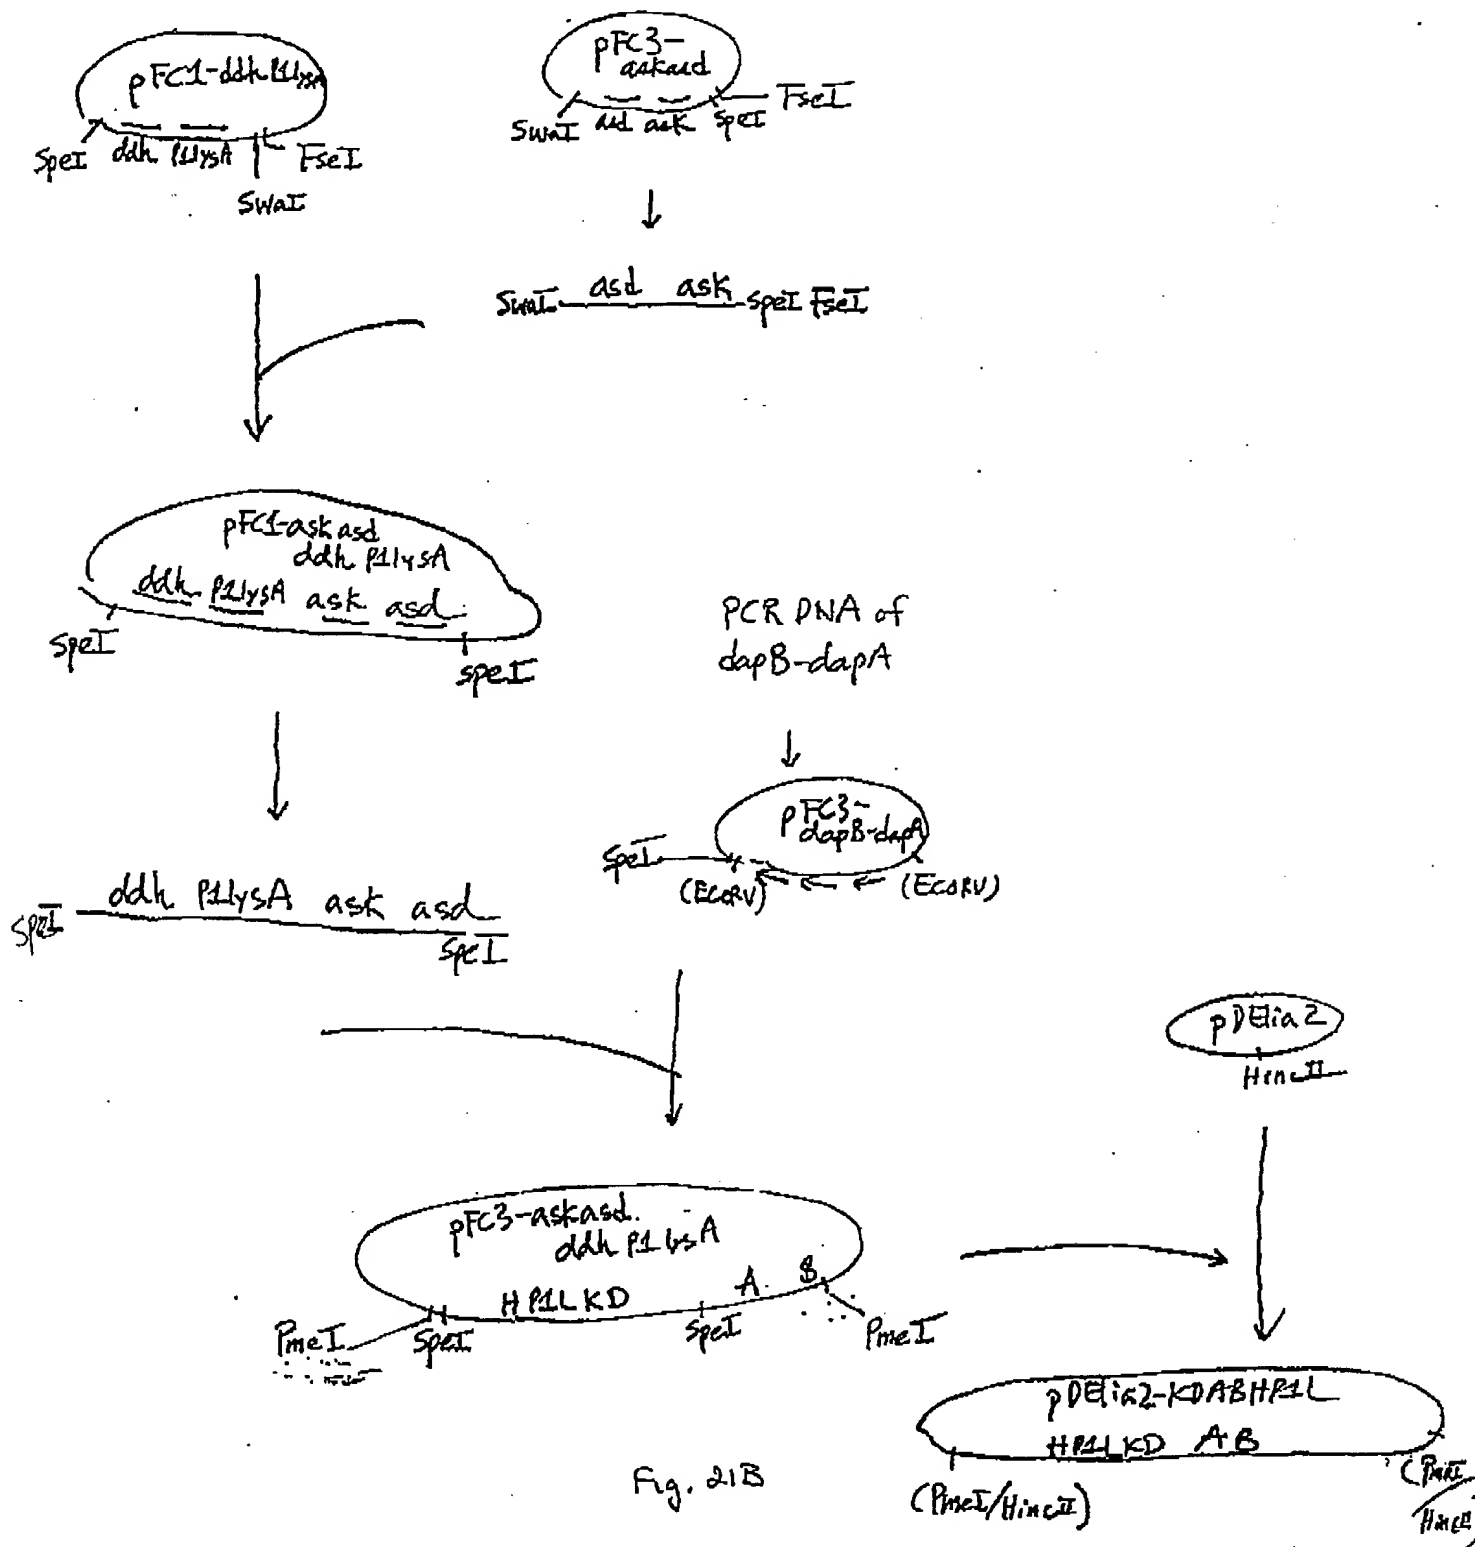 pFC1-ddh P1lysA
SpeI
ddh P1lysA
FseI
SwaI
pFC3-
askasd
SwaI asd ask SpeI
FseI
SwaI asd ask SpeI FseI
pFC1-ask asd
ddh P1lysA
ddh P1lysA ask asd
SpeI
SpeI
PCR DNA of
dapB-dapA
pFC3-
dapB-dapA
SpeI
(EcoRV)
(EcoRV)
SpeI
ddh P1lysA ask asd
SpeI
pDElia2
HincII
pFC3-askasd
ddh P1lysA
HP1LKD
A
B
PmeI
SpeI
SpeI
PmeI
pDElia2-KDABHP1L
HP1LKD AB
(PmeI/HincII)
(PmeI
HincII)
Fig. 21B